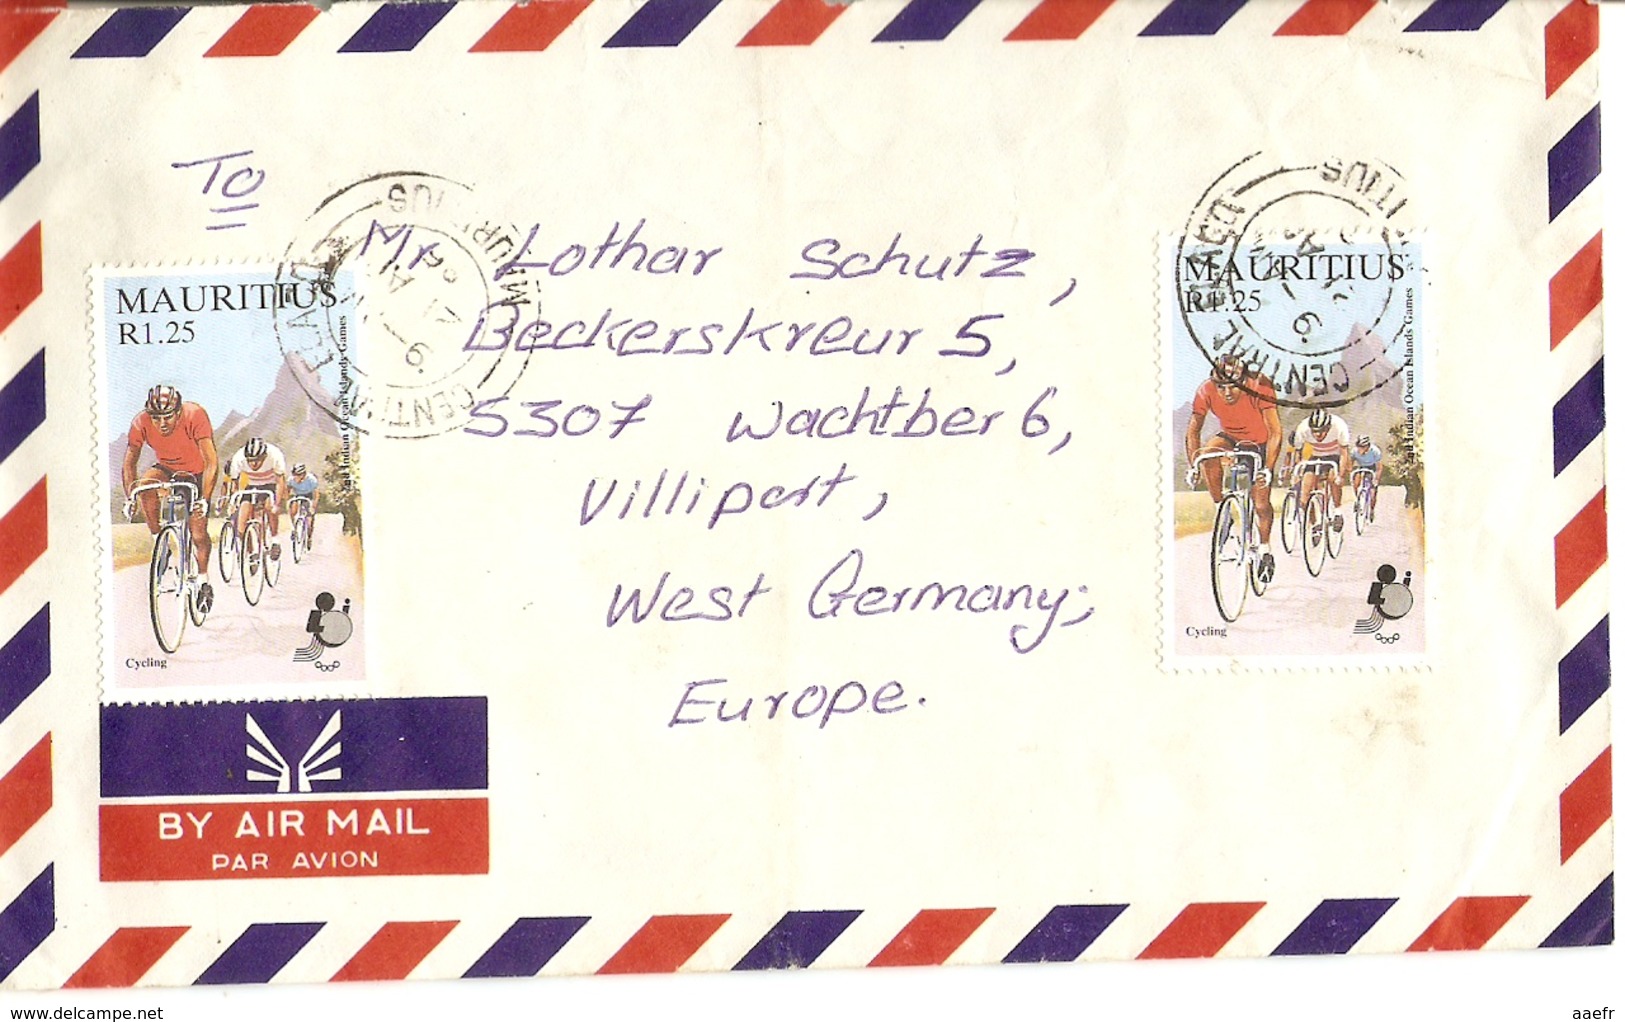 To
Mr. Lothar Schutz,
Beckerskreur 5,
5307 Wachtber 6,
Villipart,
West Germany;
Europe.
MAURITIUS
R1.25
2nd Indian Ocean Islands Games
Cycling
MAURITIUS
R1.25
2nd Indian Ocean Islands Games
Cycling
CENTRAL FLACQ
MAURITIUS
CENTRAL FLACQ
MAURITIUS
BY AIR MAIL
PAR AVION
delcampe.net
aaefr